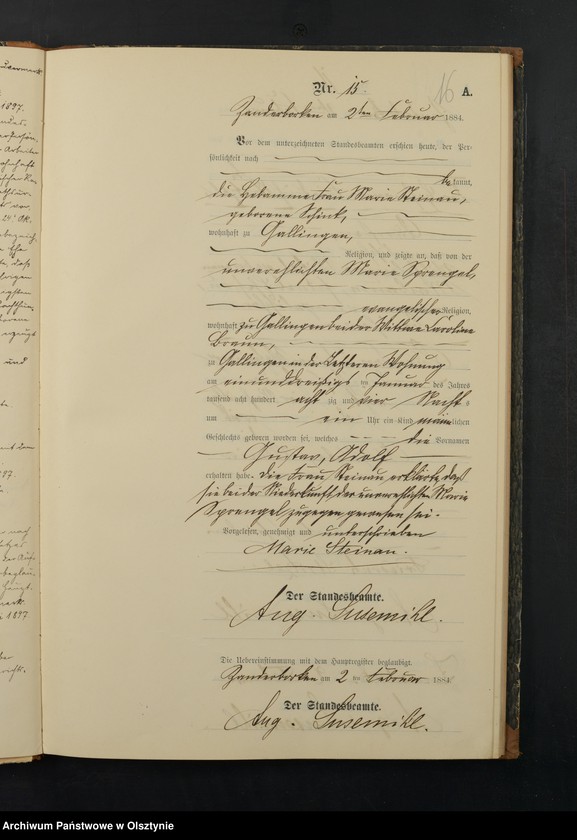 Nr. 15.
16
A.
Zanderborken am 2ten Februar 1884.
Vor dem unterzeichneten Standesbeamten erschien heute, der Per-
sönlichkeit nach
be kannt,
die Hebamme Frau Marie Steinau,
geborene Schink,
wohnhaft zu Gallingen,
Religion, und zeigte an, daß von der
unverehlichten Marie Sprengel,
evangelischer Religion,
wohnhaft zu Gallingen bei der Wittwe Caroline
Braun,
zu Gallingen in der Letzteren Wohnung
am einunddreißigsten Januar des Jahres
tausend acht hundert acht zig und vier Nachts
um ein Uhr ein Kind männlichen
Geschlechts geboren worden sei, welches die Vornamen
Gustav, Adolf
erhalten habe. Die Frau Steinau erklärte, daß
sie bei der Niederkunft der unverehlichten Marie
Sprengel zugegen gewesen sei.
Vorgelesen, genehmigt und unterschrieben
Marie Steinau.
Der Standesbeamte.
Aug. Susemihl.
Die Uebereinstimmung mit dem Hauptregister beglaubigt.
Zanderborken am 2 ten Februar 1884.
Der Standesbeamte.
Aug. Susemihl.
Archiwum Państwowe w Olsztynie